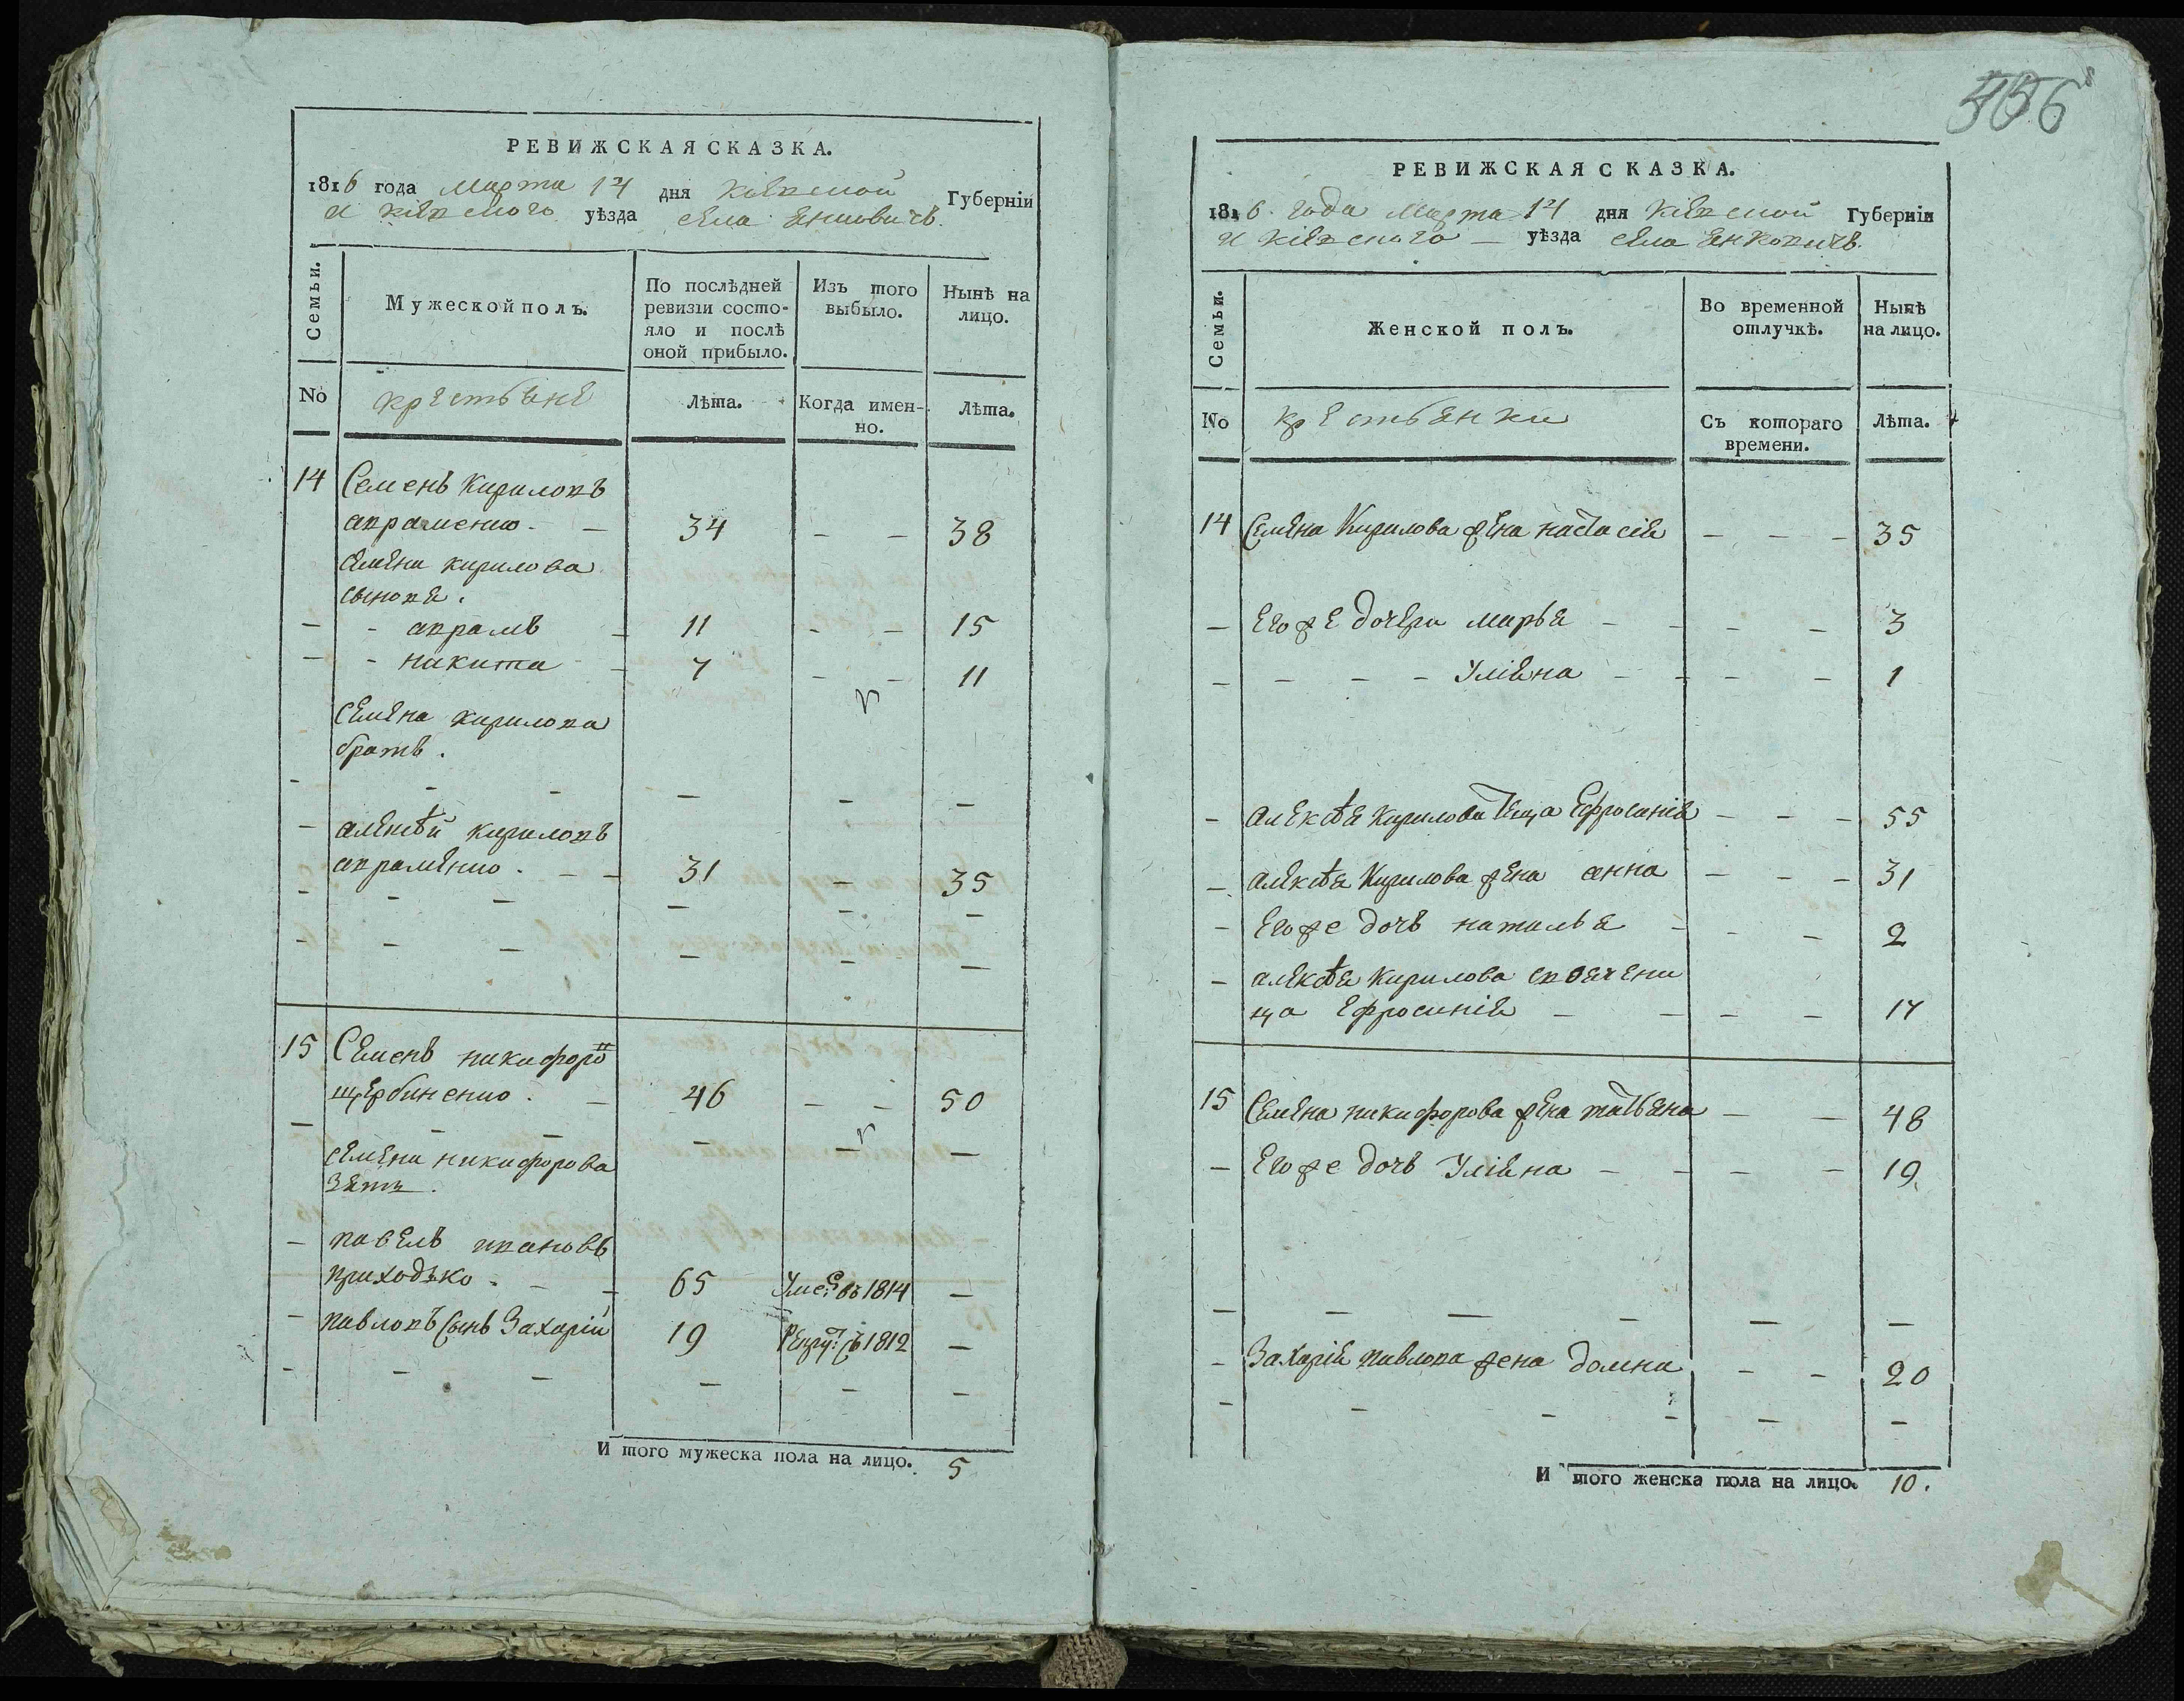 РЕВИЖСКАЯ СКАЗКА.
1816 года Марта 14 дня Кіевской Губерніи
и Кіевского уѣзда села Янковичъ.
Семьи.
Мужеской полъ.
По послѣдней ревизіи состояло и послѣ оной прибыло.
Изъ того выбыло.
Нынѣ на лицо.
No
крестьяне
Лѣта.
Когда именно.
Лѣта.
14 Семенъ Кириловъ
авраменко. — 34 — — 38
семена кирилова
сыновя.
— - аврамъ — 11 - — 15
— - никита — 7 - — 11
семена кирилова
братъ.
- - - — — —
— алексѣй кириловъ
авраменко. — — 31 — 35
- - — — — —
- - — — — —
15 Семенъ никифоро
щербиненко. — 46 — — 50
— — — — — —
семена никифорова
зять.
— павелъ ивановъ
приходько. — — 65 Уме: въ 1814 —
— павловъ сынъ Захарій 19 Рекру: въ 1812 —
- - — — — —
И того мужеска пола на лицо. 5
РЕВИЖСКАЯ СКАЗКА.
1816. года Марта 14 дня Кіевской Губерніи
и Кіевского — уѣзда села Янковичъ.
Семьи.
Женской полъ.
Во временной отлучкѣ.
Нынѣ на лицо.
No
крестьянки
Съ котораго времени.
Лѣта.
14 Семена Кирилова жена настасія — — — 35
— Егоже дочери марья — — — — 3
— — — — Уліяна — — — — 1
- алексѣя Кирилова теща Ефросинія — — — 55
— алексѣя Кирилова жена анна — — — 31
- Егоже дочь наталья - - — 2
— алексѣя Кирилова своячени
ца ефросинія — — — — 17
15 Семена никифорова жена татьяна — — 48
— Егоже дочь Уліяна — — — — 19
— — — — — —
- Захарія павлова жена домна - - 20
- - - - — —
И того женска пола на лицо. 10.